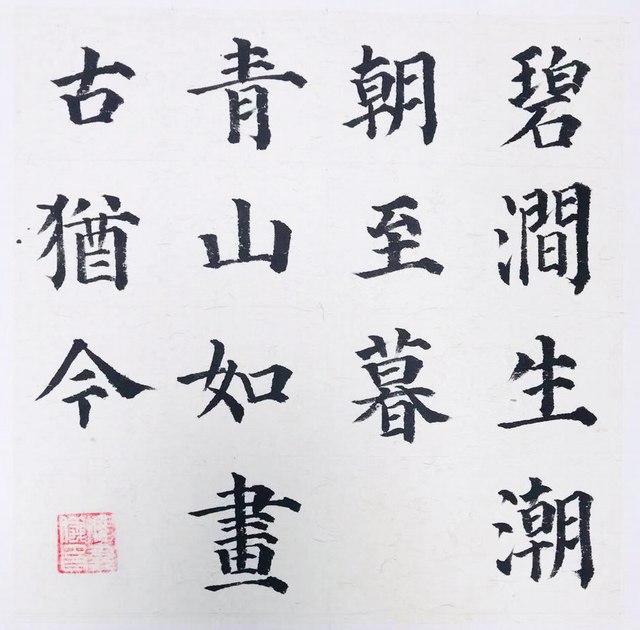 碧澗生潮
朝至暮
青山如畫
古猶今